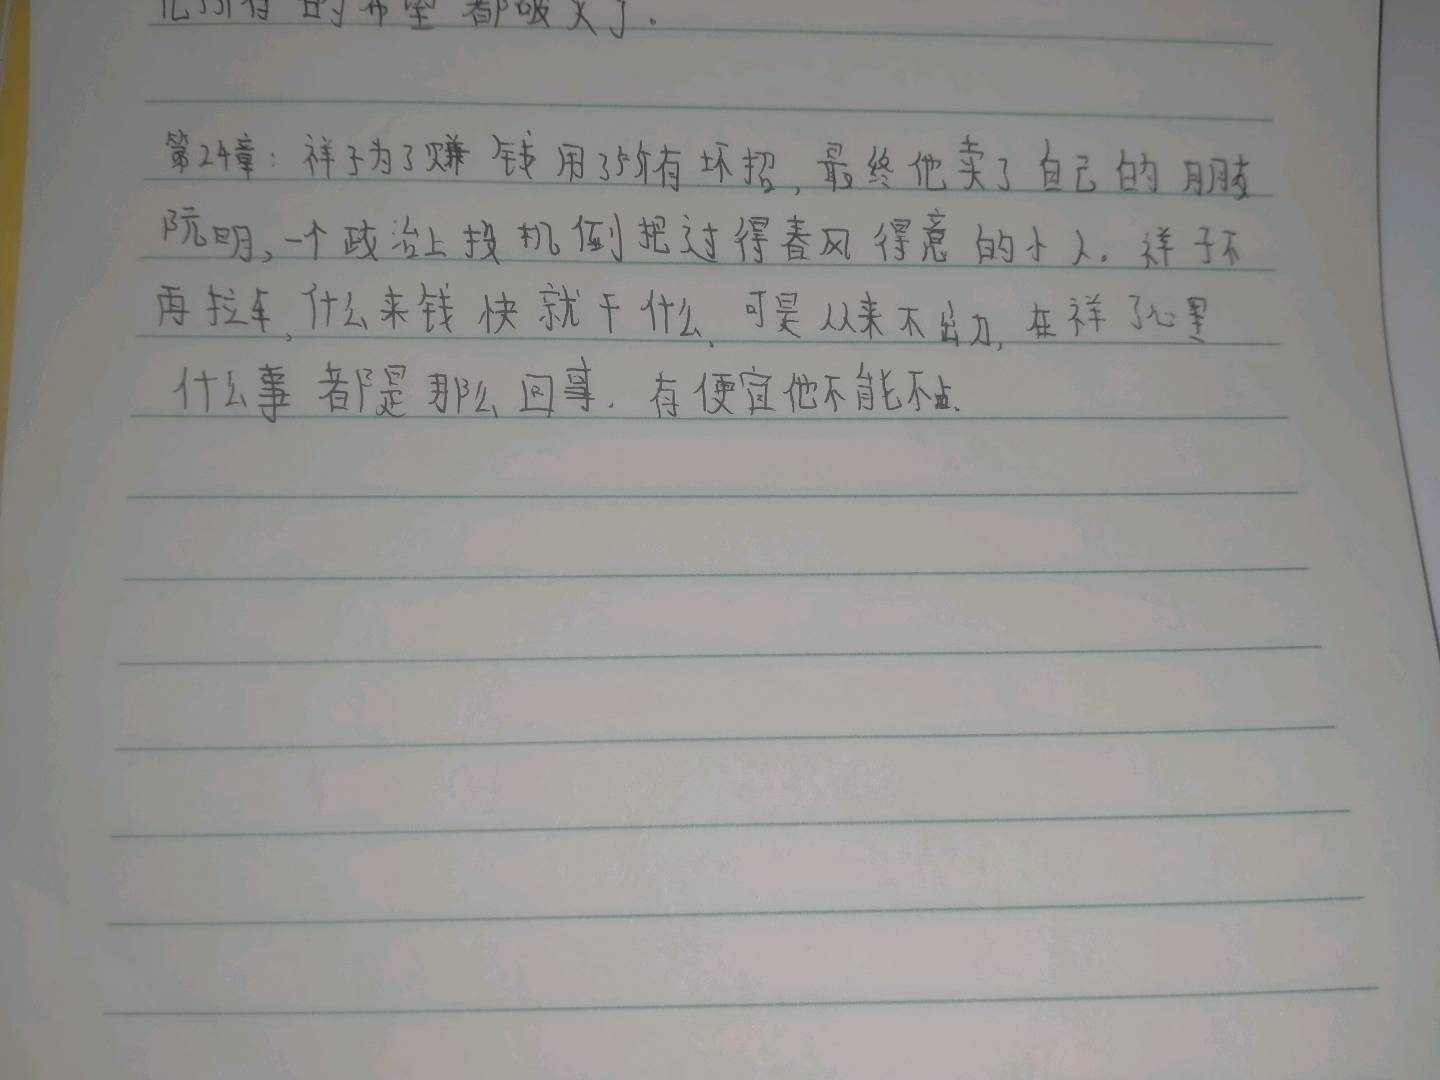 他所有的希望都破灭了.
第24章: 祥子为了赚钱用了所有坏招, 最终他卖了自己的朋友
阮明, 一个政治上投机倒把过得春风得意的小人. 祥子不
再拉车, 什么来钱快就干什么, 可是从来不出力, 在祥子心里
什么事都是那么回事. 有便宜他不能不占.